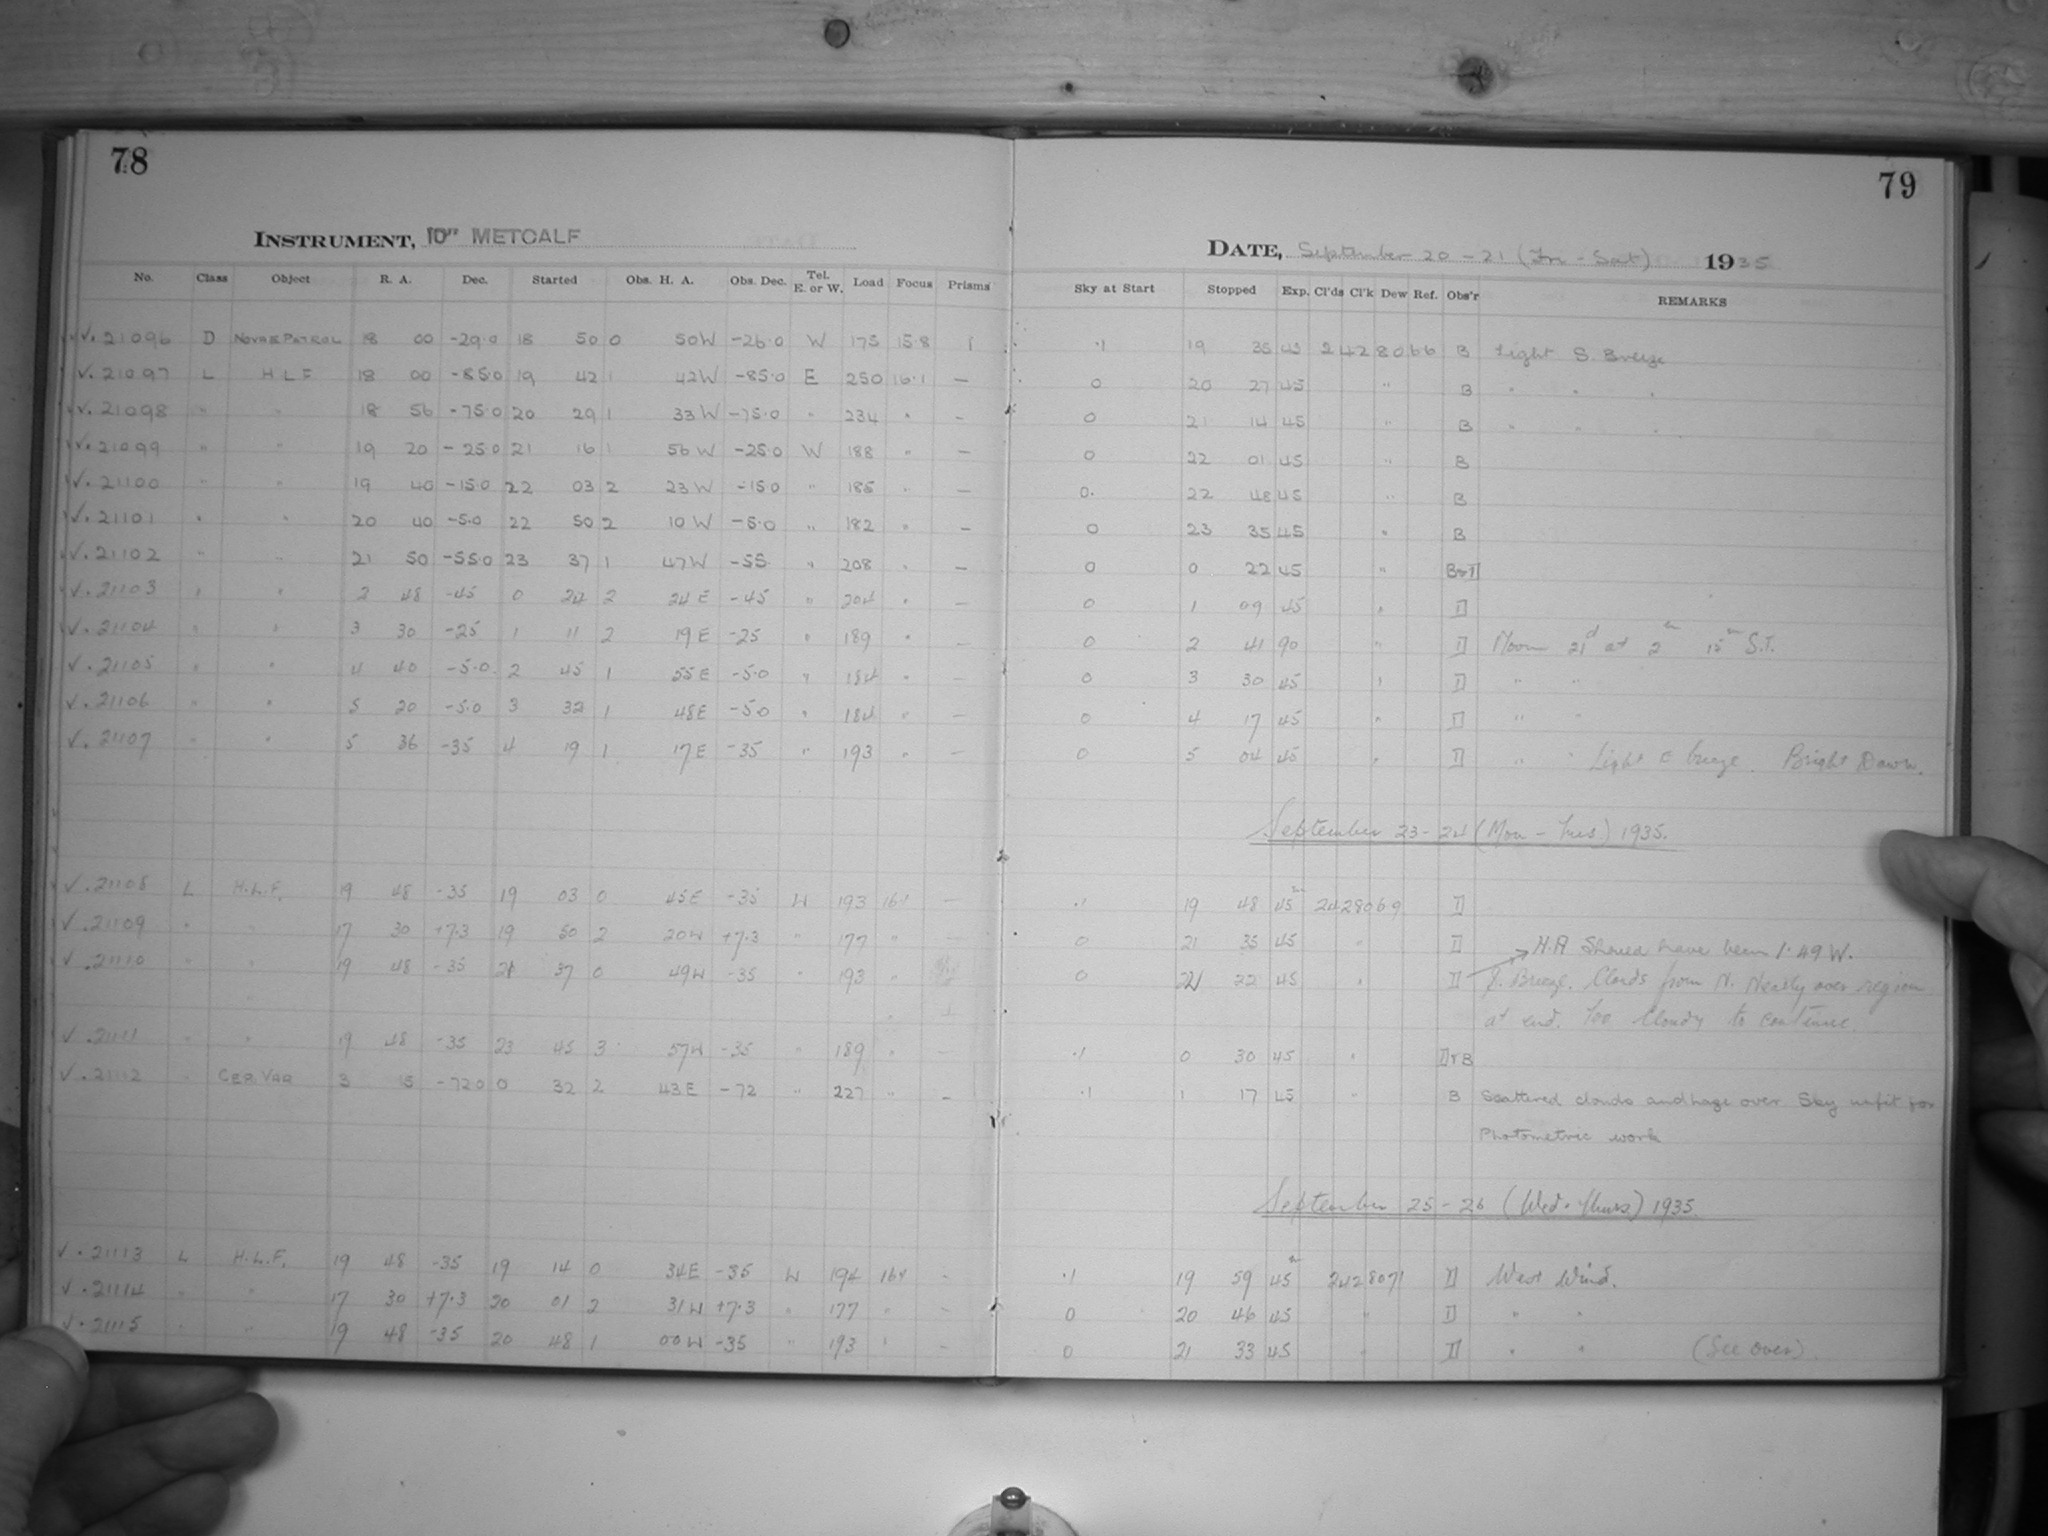 78
79
INSTRUMENT, 10" METCALF
DATE, September 20 - 21 (Fri - Sat) 1935
No. Class Object R. A. Dec. Started Obs. H. A. Obs. Dec. Tel. E. or W. Load Focus Prisms Sky at Start Stopped Exp. Cl'ds Cl'k Dew Ref. Obs'r REMARKS
√. 21096 D NOVAE PATROL 18 00 -29.0 18 50 0 50W -26.0 W 175 15.8 1 .1 19 35 45 2428066 B Light S. Breeze
√. 21097 L H L F 18 00 -85.0 19 42 1 42W -85.0 E 250 16.1 — 0 20 27 45 " B " " "
√. 21098 " " 18 56 -75.0 20 29 1 33W -75.0 " 234 " — 0 21 14 45 " B " " "
√. 21099 " " 19 20 -25.0 21 16 1 56W -25.0 W 188 " — 0 22 01 45 " B
√. 21100 " " 19 40 -15.0 22 03 2 23W -15.0 " 185 " — 0. 22 48 45 " B
√. 21101 " " 20 40 -5.0 22 50 2 10W -5.0 " 182 " — 0 23 35 45 " B
√. 21102 " " 21 50 -55.0 23 37 1 47W -55 " 208 " — 0 0 22 45 "
√. 21103 " " 2 48 -45 0 24 2 24E -45 " 204 " — 0 1 09 45 "
√. 21104 " " 3 30 -25 1 11 2 19E -25 " 189 " — 0 2 41 90 " Moon 21d at 2h 15m S.T.
√. 21105 " " 4 40 -5.0 2 45 1 55E -5.0 " 184 " — 0 3 30 45 " " "
√. 21106 " " 5 20 -5.0 3 32 1 48E -5.0 " 184 " — 0 4 17 45 " " "
√. 21107 " " 5 36 -35 4 19 1 17E -35 " 193 " — 0 5 04 45 " " " Light E breeze. Bright Dawn.
September 23-24 (Mon - Tues) 1935.
√. 21108 L H.L.F. 19 48 -35 19 03 0 45E -35 W 193 16.1 — .1 19 48 45m 2428069
√. 21109 " " 17 30 +7.3 19 50 2 20W +7.3 " 177 " — 0 21 35 45 " H.A Should have been 1.49 W.
√. 21110 " " 19 48 -35 21 37 0 49W -35 " 193 " 0 22 22 45 " Breeze. Clouds from N. Nearly over region
at end. Too Cloudy to continue.
√. 21111 " " 19 48 -35 23 45 3 57W -35 " 189 " — .1 0 30 45 "
√. 21112 " CEP. VAR 3 15 -72.0 0 32 2 43E -72 " 227 " — .1 1 17 45 " B Scattered clouds and haze over Sky unfit for
Photometric work
September 25-26 (Wed. Thurs) 1935.
√. 21113 L H.L.F. 19 48 -35 19 14 0 34E -35 W 194 16.1 - .1 19 59 45m 2428071 West Wind.
√. 21114 " " 17 30 +7.3 20 01 2 31W +7.3 " 177 " - 0 20 46 45 " " "
√. 21115 " " 19 48 -35 20 48 1 00W -35 " 193 " - 0 21 33 45 " " " (See over).